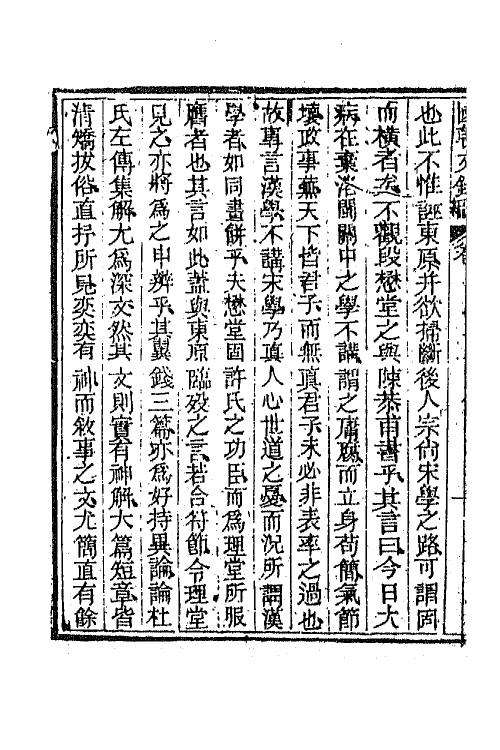 國朝文錄
也此不惟誣東原并欲掃斷後人宗尙宋學之路可謂固
而橫者矣不觀段懋堂之與陳恭甫書乎其言曰今日大
病在棄洛閩關中之學不講謂之庸腐而立身苟簡氣節
壞政事蕪天下皆君子而無眞君子未必非表率之過也
故專言漢學不講宋學乃眞人心世道之憂而況所謂漢
學者如同畫餅乎夫懋堂固許氏之功臣而爲理堂所服
膺者也其言如此蓋與東原臨歿之言若合符節令理堂
見之亦將爲之申辨乎其翼錢三篇亦爲好持異論論杜
氏左傳集解尤爲深文然其文則實有神解大篇短章皆
淸矯拔俗直抒所見奕奕有神而敘事之文尤簡直有餘